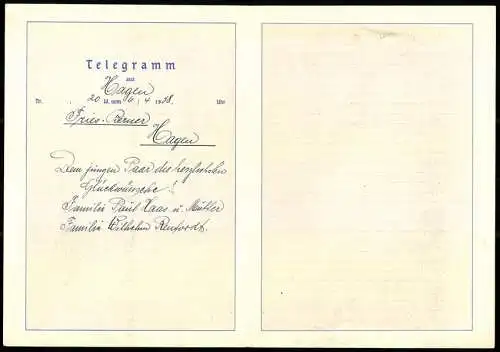 Telegramm
aus
Hagen
Nr. 20 W. vom 4/4 1938. Uhr
Fries-Berner
Hagen
Dem jungen Paar die herzlichsten
Glückwünsche!
Familie Paul Haas u. Mutter
Familie Wilhelm Renfordt.